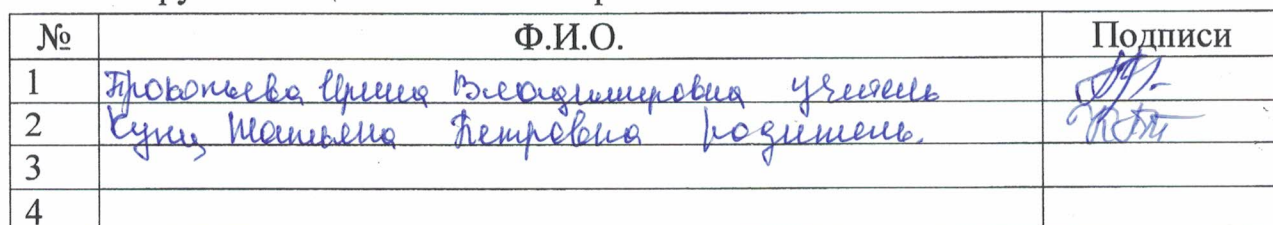 № Ф.И.О. Подписи
1 Прокопьева Ирина Владимировна учитель
2 Кунц Татьяна Петровна родитель.
3
4